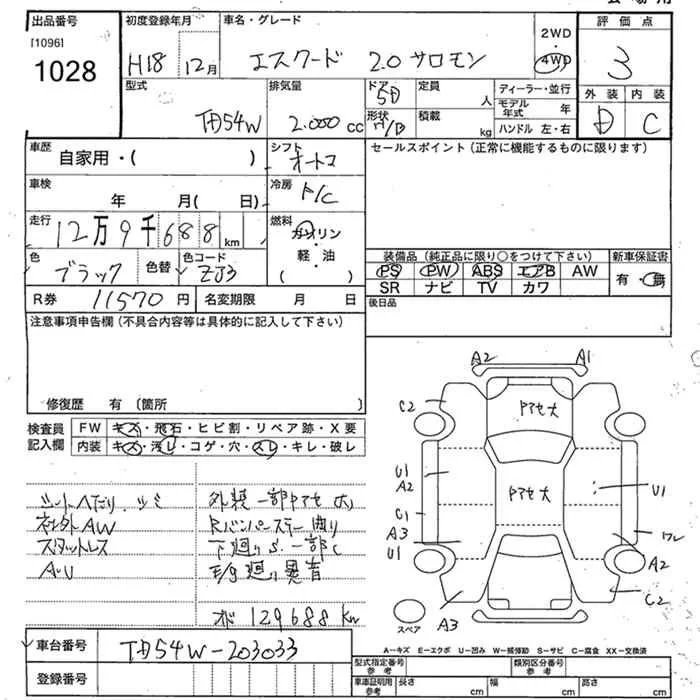 出品番号
[1096]
1028
初度登録年月
H18 12月
車名・グレード
エスクード 2.0 サロモン
2WD
4WD
評価点
3
外装 内装
D C
型式
TD54W
排気量
2.000 cc
ドア
5D
形状
H/B
定員
人
積載
kg
ディーラー・並行
モデル年式
年
ハンドル 左・右
車歴
自家用・( )
シフト
オートマ
セールスポイント (正常に機能するものに限ります)
車検
年 月( 日)
冷房
A/C
走行
12万9千688 km
燃料
ガソリン
・
軽・油
( )
色
ブラック
色替
色コード
ZJ3
装備品 (純正品に限り○をつけて下さい)
新車保証書
PS PW ABS エアB AW
有・無
SR ナビ TV カワ
R券 11570 円
名変期限 月 日
後日品
注意事項申告欄 (不具合内容等は具体的に記入して下さい)
修復歴 有 (箇所
検査員
記入欄
FW キズ・飛石・ヒビ割・リペア跡・X要
内装 キズ・汚レ・コゲ・穴・スレ・キレ・破レ
シートへたり、ツミ
社外AW
スタットレス
A・U
外装一部ヤケ 大
Rバンパーステー曲り
下廻りS.一部C
E/g廻り異音
オド 129688 km
A2 A1
C2
U1
A2
C1
A3
U1
U1
ワレ
A2
C2
A3
スペア
A−キズ E−エクボ U−凹み W−補修跡 S−サビ C−腐食 XX−交換済
車台番号
TD54W-203033
登録番号
型式指定番号
参考
類別区分番号
参考
車庫証明用
参考
長さ cm 幅 cm 高さ cm